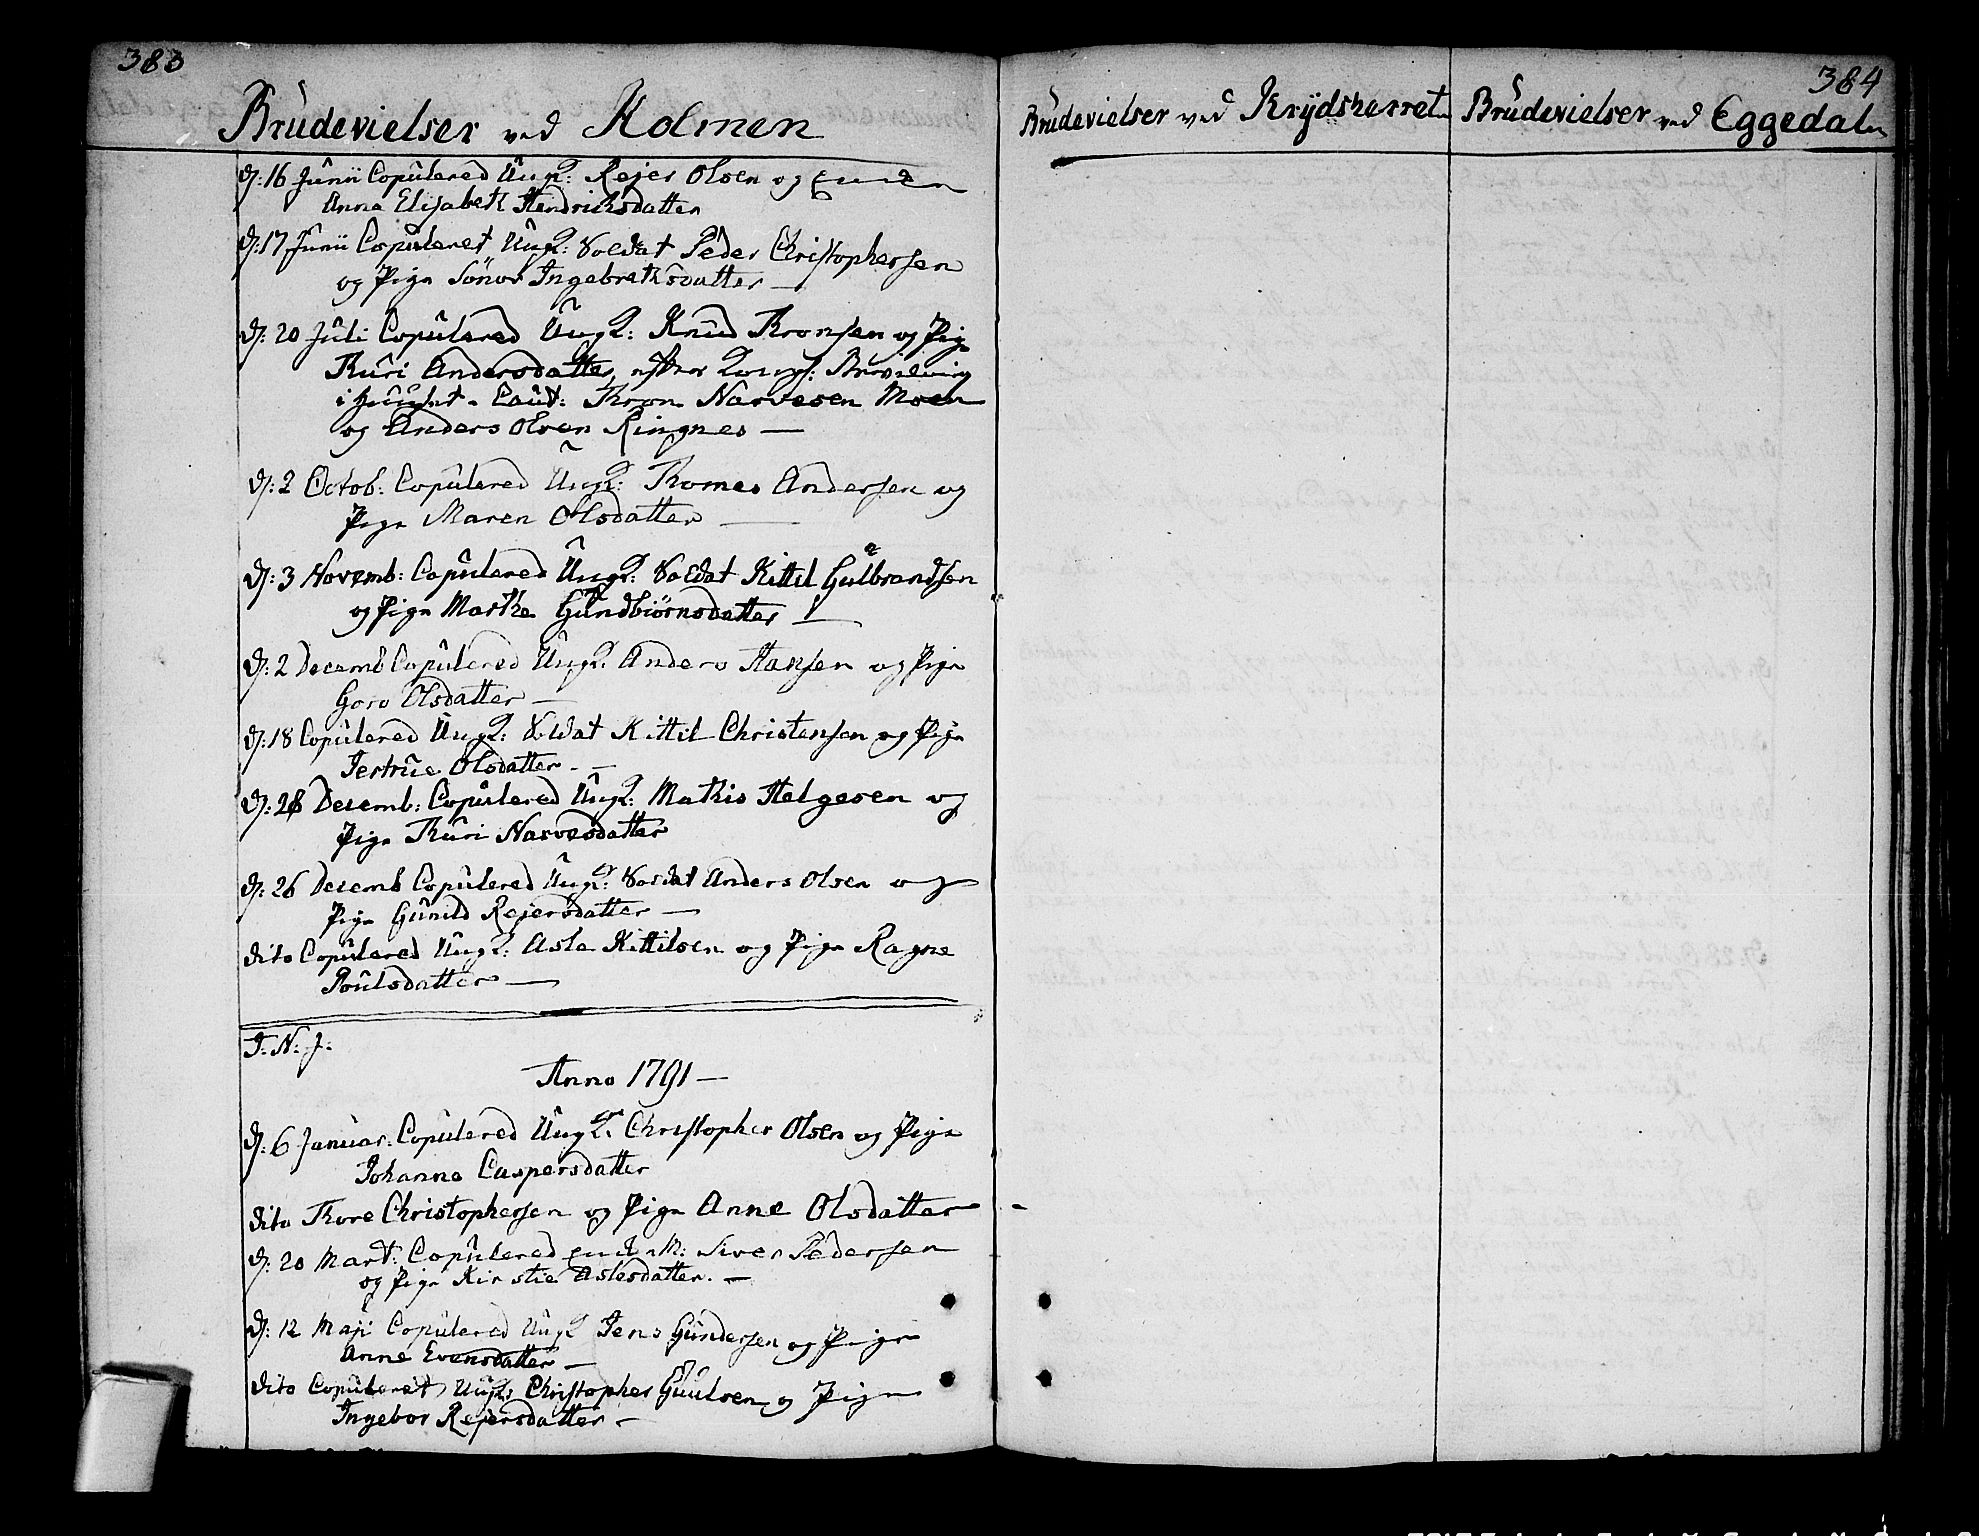 383
Brudevielser ved Holmen
D: 16 Junii Copulered Ungk: Rejer Olsen og Enken
Anne Elisabeth Hendrichsdatter
D: 17 Junii Copuleret Ungk: Soldat Peder Christophersen
og Pige Sönov Ingebrethsdatter —
D: 20 Juli Copulered Ungk: Knud Thronsen og Pige
Thuri Andersdatter, efter Kongl: Bevilning
i Huuset. Caut: Thron Narvesen Moen
og Anders Olsen Ringnes —
D: 2 Octob: Copulered Ungk: Thomes Andersen og
Pige Maren Olsdatter —
D: 3 Novemb: Copulered Ungk: Soldat Kittil Gulbrandsen
og Pige Marthe Gundbiörnsdatter —
D: 2 Decemb Copulered Ungk: Anders Hansen og Pige
Goro Olsdatter —
D: 18 Copulered Ungk: Soldat Kittil Christensen og Pige
Jertrue Olsdatter. —
D: 28 Decemb: Copulered Ungk: Mathis Helgesen og
Pige Thuri Narvesdatter
D: 26 Decemb Copulered Ungk: Soldat Anders Olsen og
Pige Gunild Rejersdatter —
dito Copulered Ungk: Asle Kittilsen og Pige Ragne
Poulsdatter —
I: N: J:
Anno 1791 —
D: 6 Januar: Copulered Ungk: Christopher Olsen og Pige
Johanne Caspersdatter
dito Thore Christophersen og Pige Anne Olsdatter —
D: 20 Mart: Copulered Enke M: Siver Pedersen
og Pige Kirstie Aslesdatter. —
D: 12 Maji Copulered Ungk Jens Gundersen og Pige
Anne Evensdatter —
dito Copuleret Ungk: Christopher Guulsen og Pige
Ingebor Rejersdatter —
384
Brudevielser ved Krydsherret
Brudevielser ved Eggedal